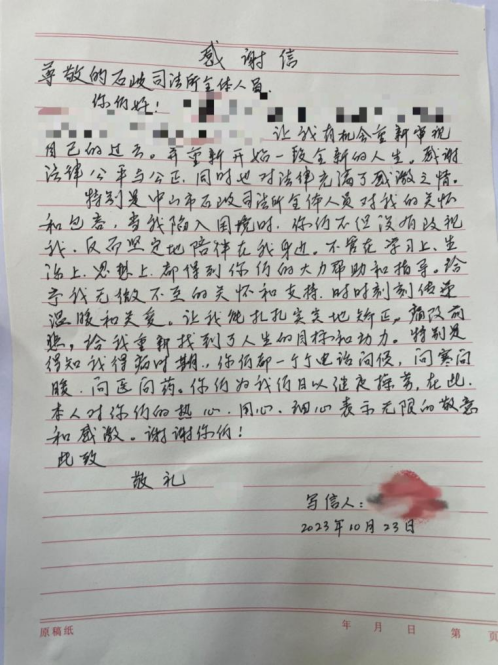 感谢信
尊敬的石岐司法所全体人员.
你们好!
让我有机会重新审视
自己的过去。并重新开始一段全新的人生。感谢
法律公平与公正,同时也对法律充满了感激之情。
特别是中山市石岐司法所全体人员对我的关怀
和包容,当我陷入困境时,你们不但没有歧视
我,反而坚定地陪伴在我身边。不管在学习上、生
活上、思想上都得到你们的大力帮助和指导。给
予我无微不至的关怀和支持,时时刻刻传递
温暖和关爱。让我能扎扎实实地矫正,痛改前
非,给我重新找到了人生的目标和动力。特别是
得知我得病时期,你们都一个个电话问候,问寒问
暖、问医问药。你们为我们日以继夜操劳,在此,
本人对你们的热心、用心、细心表示无限的敬意
和感激。谢谢你们!
此致
敬礼
写信人:
2023年10月23日
原稿纸 年 月 日 第 页